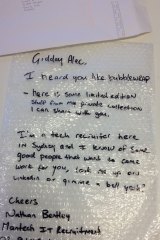 Gidday Alec,
I heard you like bubblewrap
- here is some limited edition
stuff from my private collection
I can share with you.
I'm a tech recruiter here
in Sydney and I know of some
good people that want to come
work for you, look me up on
linkedin or gimme a bell yeah?
Cheers
Nathan Bentley
Mantech IT Recruitment